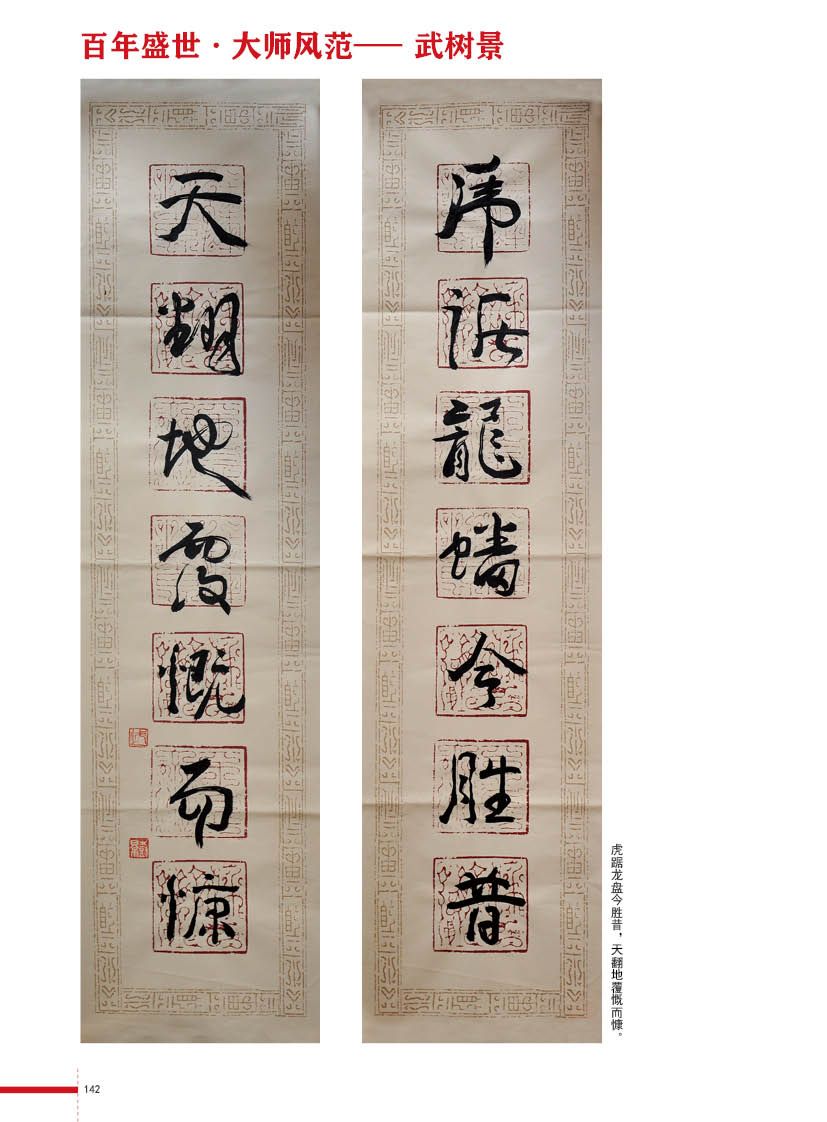 百年盛世·大师风范—— 武树景
虎踞龍蟠今胜昔
天翻地覆慨而慷
虎踞龙盘今胜昔，天翻地覆慨而慷。
142